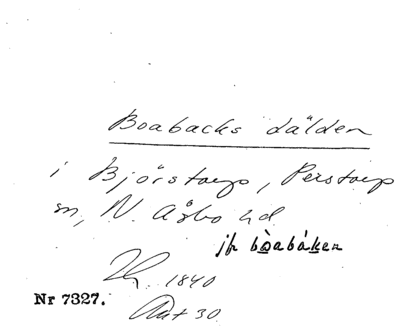 Boabacks dälden
i Björstorp, Perstorp
sn, N. Åsbo hd
jfr bòabáken
1840
Nr 7327.
30